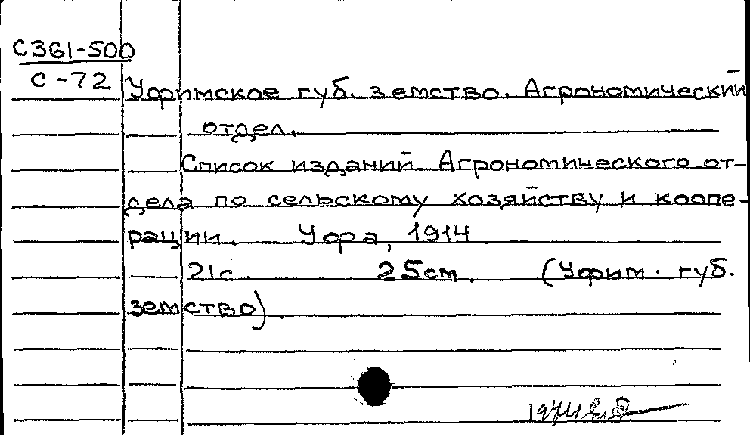 С361-500
С-72
Уфимское губ. земство. Агрономический
отдел.
Список изданий Агрономического от-
дела по сельскому хозяйству и коопе-
рации. Уфа, 1914
21с. 25см. (Уфим. губ.
земство).